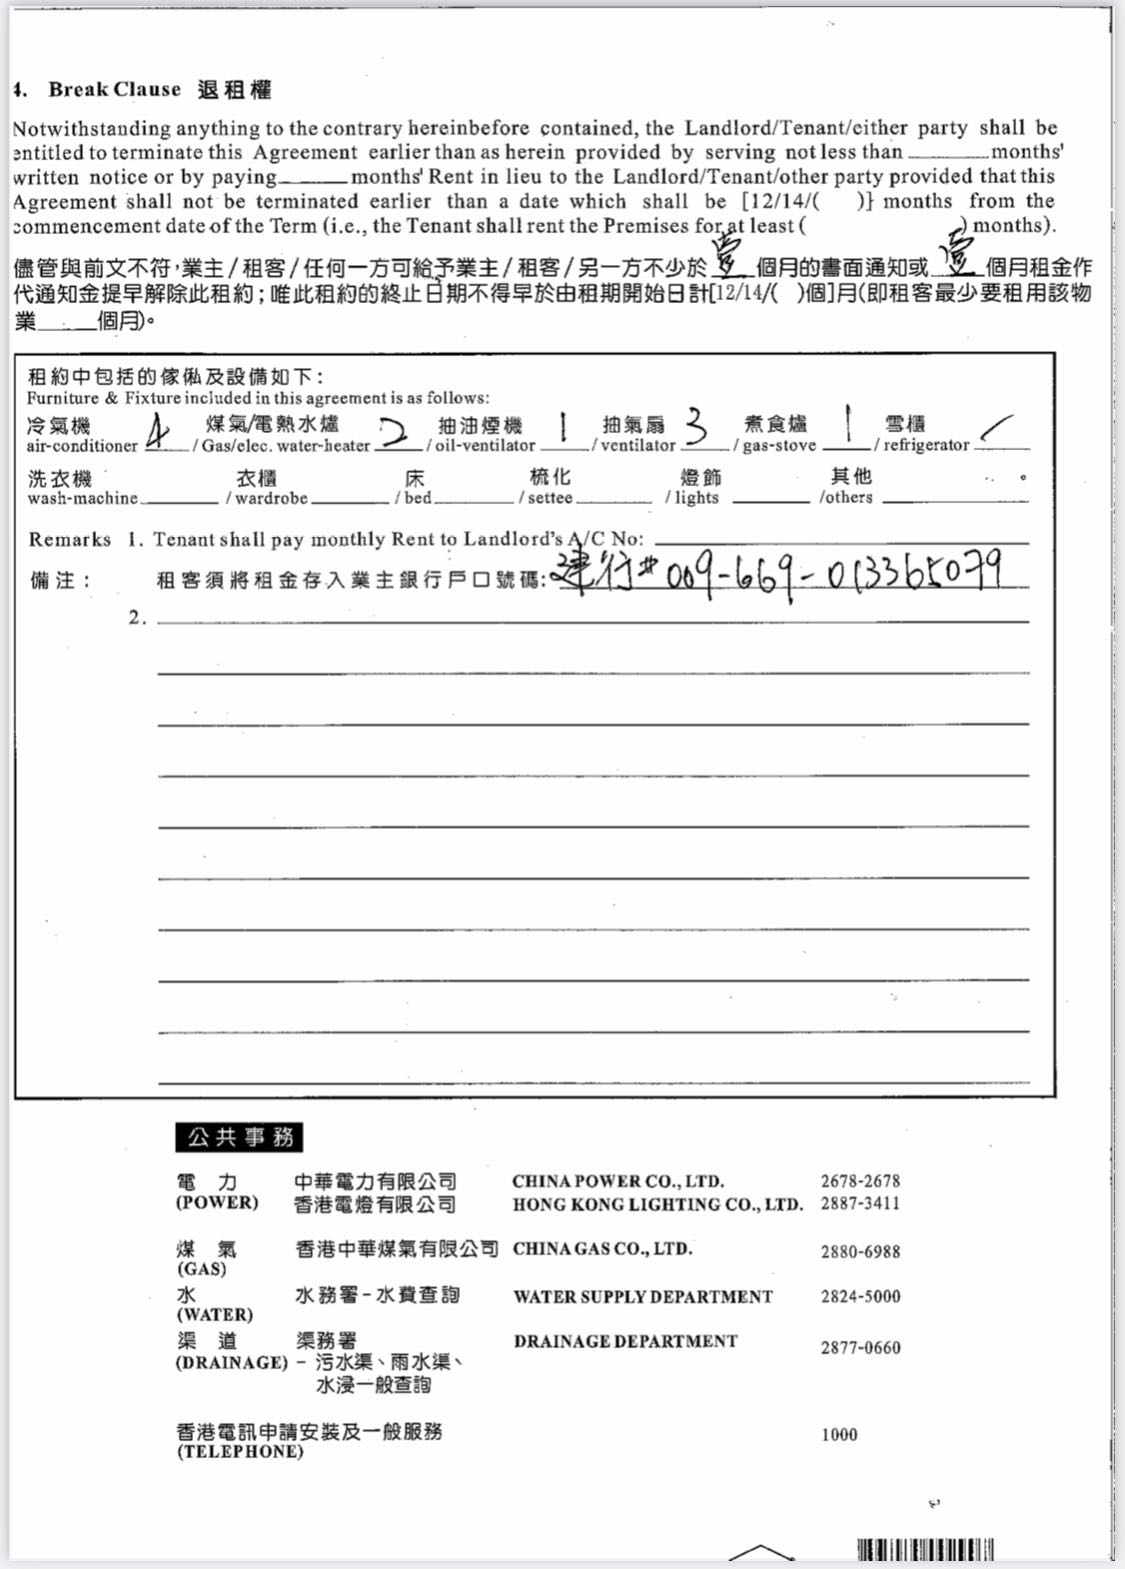 4. Break Clause 退租權
Notwithstanding anything to the contrary hereinbefore contained, the Landlord/Tenant/either party shall be
entitled to terminate this Agreement earlier than as herein provided by serving not less than ______ months'
written notice or by paying ______ months' Rent in lieu to the Landlord/Tenant/other party provided that this
Agreement shall not be terminated earlier than a date which shall be [12/14/( )} months from the
commencement date of the Term (i.e., the Tenant shall rent the Premises for at least ( ) months).
儘管與前文不符,業主/租客/任何一方可給予業主/租客/另一方不少於 壹 個月的書面通知或 壹 個月租金作
代通知金提早解除此租約;唯此租約的終止日期不得早於由租期開始日計[12/14/( )個]月(即租客最少要租用該物
業______個月)。
租約中包括的傢俬及設備如下:
Furniture & Fixture included in this agreement is as follows:
冷氣機 煤氣/電熱水爐 抽油煙機 抽氣扇 煮食爐 雪櫃
air-conditioner 4 / Gas/elec. water-heater 2 / oil-ventilator 1 / ventilator 3 / gas-stove 1 / refrigerator ✓
洗衣機 衣櫃 床 梳化 燈飾 其他 。
wash-machine ______ / wardrobe ______ / bed ______ / settee ______ / lights ______ /others ______
Remarks 1. Tenant shall pay monthly Rent to Landlord's A/C No: ______
備注: 租客須將租金存入業主銀行戶口號碼: 建行# 009-669-013365079
2. ______
公共事務
電 力 中華電力有限公司 CHINA POWER CO., LTD. 2678-2678
(POWER) 香港電燈有限公司 HONG KONG LIGHTING CO., LTD. 2887-3411
煤 氣 香港中華煤氣有限公司 CHINA GAS CO., LTD. 2880-6988
(GAS)
水 水務署-水費查詢 WATER SUPPLY DEPARTMENT 2824-5000
(WATER)
渠 道 渠務署 DRAINAGE DEPARTMENT 2877-0660
(DRAINAGE) - 污水渠、雨水渠、
水浸一般查詢
香港電訊申請安裝及一般服務 1000
(TELEPHONE)